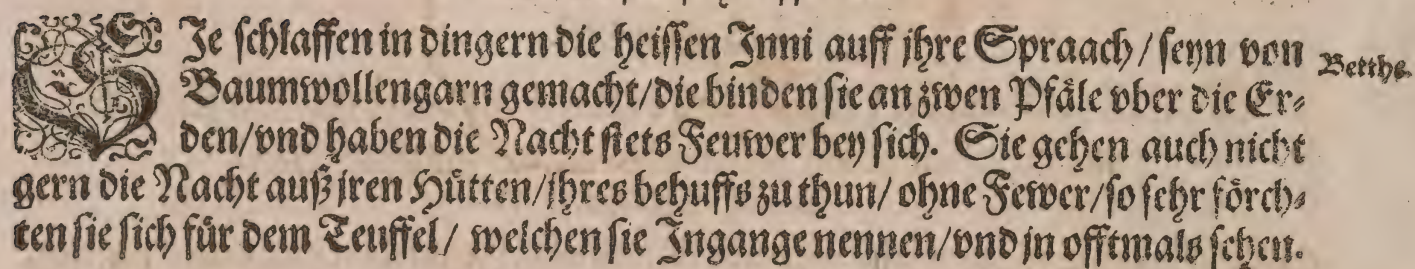 SJe schlaffen in dingern die heissen Inni auff jhre Spraach / seyn von
Betthe.
Baumwollengarn gemacht/die binden sie an zwen Pfäle vber die Er-
den/vnd haben die Nacht stets Feuwer bey sich. Sie gehen auch nicht
gern die Nacht auß jren Hütten/jhres behuffs zu thun/ ohne Fewer/so sehr förch-
ten sie sich für dem Teuffel/ welchen sie Ingange nennen/vnd jn offtmals sehen.